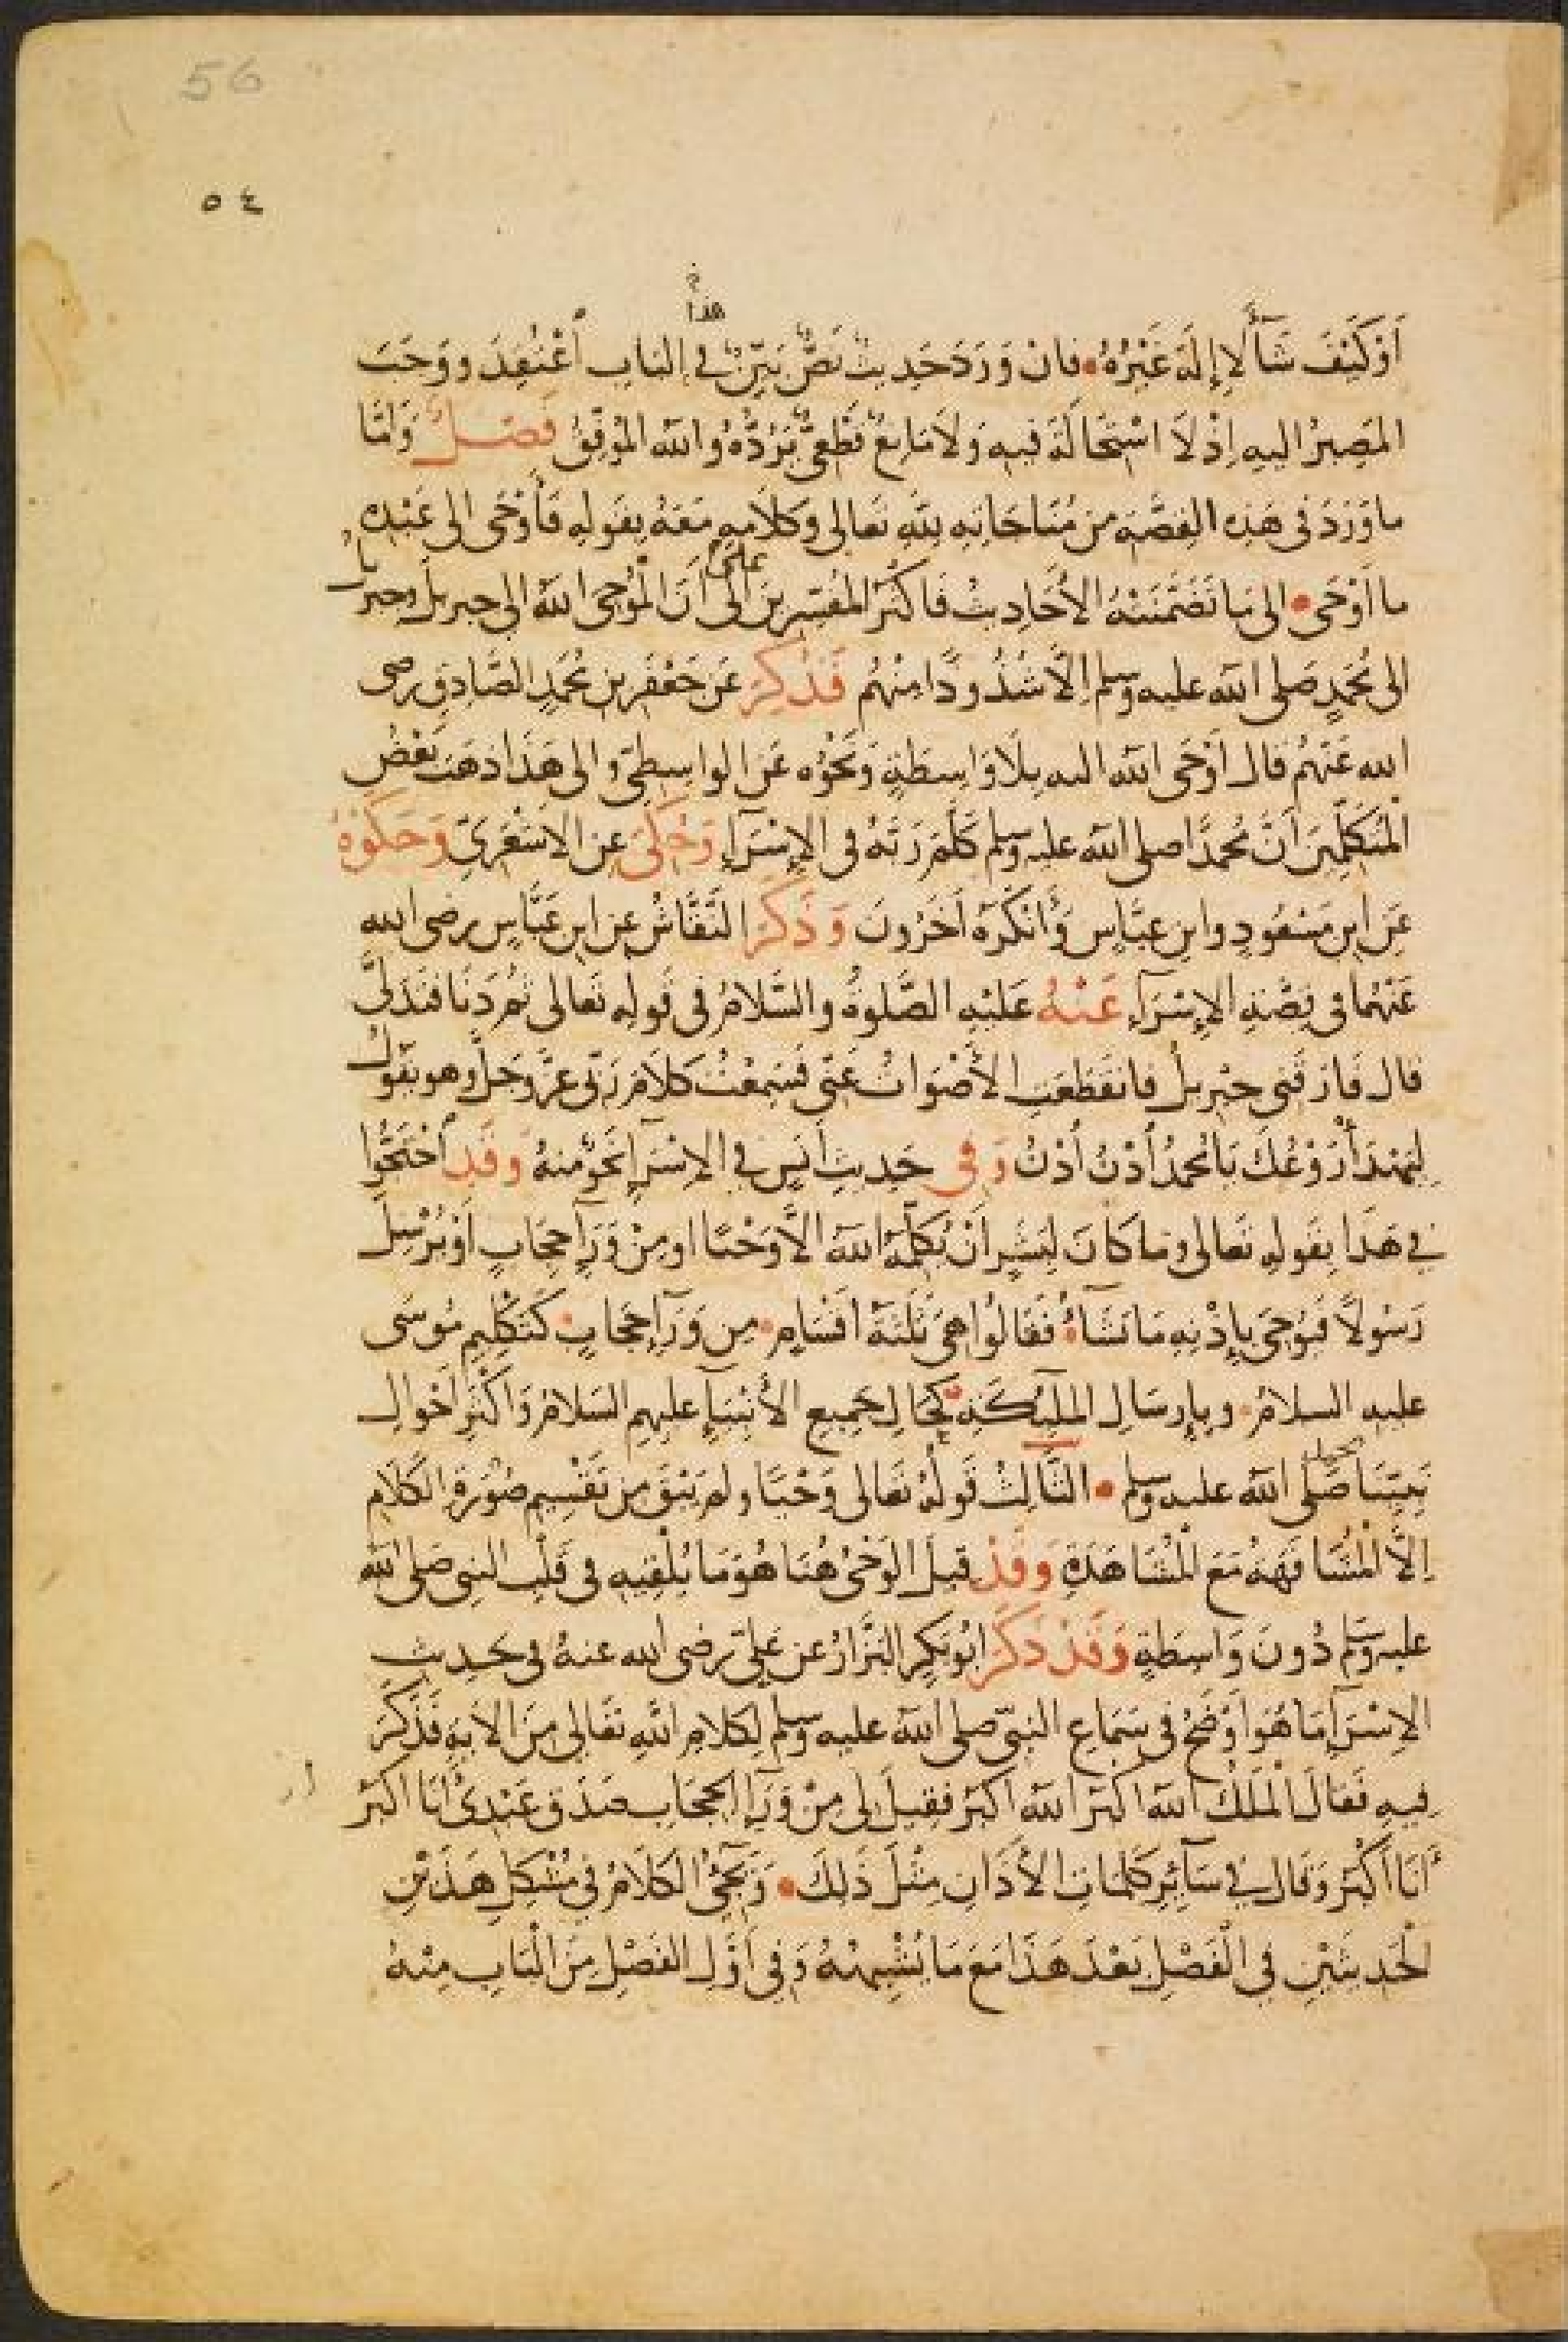 56
٥٤
هذا
أَوْ كَيْفَ شَآءَ لا إِلَهَ غَيْرُهُ • فان وَرَدَ حَدِيثٌ نَصٌّ بَيِّنٌ في الباب أُعْتُقِدَ ووَجَبَ
المَصِيرُ اليهِ إِذْ لَا اسْتِحَالَةَ فيه وَلَا مَانِعٌ قَطْعِيٌّ يَرُدُّهُ والله المُوَفِّقُ فَصْلٌ وَامَّا
ما وَرَدَ فى هَذِهِ القِصَّةِ من مُنَاجَاتِهِ لله تعالى وكَلَامِهِ مَعَهُ بِقَوْلِهِ فَأَوْحَى الى عَبْدِهِ
ما أَوْحَى • الى مَا تَضَمَّنَتْهُ الأَحَادِيثُ فَاكْثَرُ المُفَسِّرِينَ الى على أَنَّ المُوحِىَ اللهُ الى جبريل وجبريل
الى مُحَمَّدٍ صَلى الله عليه وسلم إِلَّا شُذُوذًا مِنْهُم فَذُكِرَ عَن جَعْفَرِ بن مُحَمَّدٍ الصَّادِقِ رضى
الله عَنْهُم قال أَوْحَى الله اليه بِلَا وَاسِطَةٍ وَنَحْوُه عَن الواسِطِيِّ والى هَذَا ذهَبَ بَعْضُ
المُتَكَلِّمِينَ أَنَّ مُحمدًا صلى الله عليه وسلم كَلَّمَ رَبَّهُ فى الإِسْرَآءِ وَحُكِىَ عن الاشْعَرِيِّ وَحَكَوْهُ
عَن ابن مَسْعُودٍ وابنِ عبَّاسٍ وَأَنْكَرَهُ آخَرُونَ وَذَكَرَ النَّقَّاشُ عن ابنِ عَبَّاسٍ رضى الله
عَنْهُما فى قِصَّةِ الإِسْرَآءِ عَنْهُ عَلَيْهِ الصَّلوةُ والسَّلامُ فى قَولِهِ تَعالى ثُم دَنَا فتَدَلَّى
قال فَارَقَنى جِبْرِيلُ فانقَطَعَتِ الأَصْوَاتُ عَنِّى فَسَمِعْتُ كلَامَ رَبِّى عَزَّ وجَلَّ وهو يَقُولُ
لِيَهْدَأْ رَوْعُكَ يَا مُحمدُ أُدْنُ أُدْنُ وَفى حَدِيثِ أَنَسٍ في الاسْرَآءِ نَحْوٌ منهُ وقَدِ احْتَجُّوا
في هَذَا بِقَولِهِ تَعالى ومَا كَانَ لِبَشَرٍ أَنْ يُكَلِّمَهُ اللهُ إلاَّ وَحْيًا او مِنْ وَرَآءِ حِجَابٍ أَوْ يُرْسِلَ
رَسُولًا فَيُوحِىَ بِإِذْنِهِ مَا يَشَآءُ • فَقَالُوا هِىَ ثَلَثَةُ اقْسَامٍ • مِن وَرَآءِ حِجَابٍ • كَتَكْلِيمِ مُوسَى
عليه السلامُ • وبِإِرسَالِ المَلَئِكَةِ • كَحَالِ جَمِيعِ الأَنْبِيَآءِ عليهِم السَلامُ وَأَكْثَرِ أَحْوالِ
نَبِيِّنَا محمد صَلَّى الله عليه وسلم • الثَّالِثُ قَولُهُ تَعالى وَحْيًا ولم يَبْقَ مِن تَقْسِيمِ صُورَةِ الكَلَامِ
إِلاَّ المُشَافَهَةُ مَعَ المُشَاهَدَةِ وَقَدْ قيلَ الوَحْىُ هُنَا هُوَ مَا يُلْقِيهِ فى قَلْبِ النبى صَلى الله
عليه وسلم دُونَ وَاسِطَةٍ وَقَدْ ذَكَرَ ابُو بَكرٍ البَزَّارُ عن عَلِيٍّ رضى الله عنهُ فى حَدِيثِ
الإِسْرَآءِ مَا هُوَ أَوْضَحُ فى سَمَاعِ النبِيِّ صلى الله عليه وسلم لِكَلامِ اللهِ تَعَالى مِنَ الآيةِ فَذَكَرَ
فيهِ فَقالَ المَلَكُ الله اكبَرُ الله اكبَرُ فقِيلَ لى مِنْ وَرَآءِ الحِجَابِ صَدَقَ عَبْدِى أَنَا اكبَرُ
أَنَا أَكْبَرُ وَقال في سَآئِرِ كَلِمَاتِ الأَذَانِ مِثْلَ ذَلِكَ • وَيَجِئُ الكَلَامُ فى مُشْكِلِ هَذَيْنِ
الْحَدِيثَيْنِ في الْفَصْلِ بَعْدَ هَذَا مَعَ مَا يُشْبِهُهُ وَفى أَوَّلِ الفَصْلِ مِنَ الْبَابِ مِنْهُ